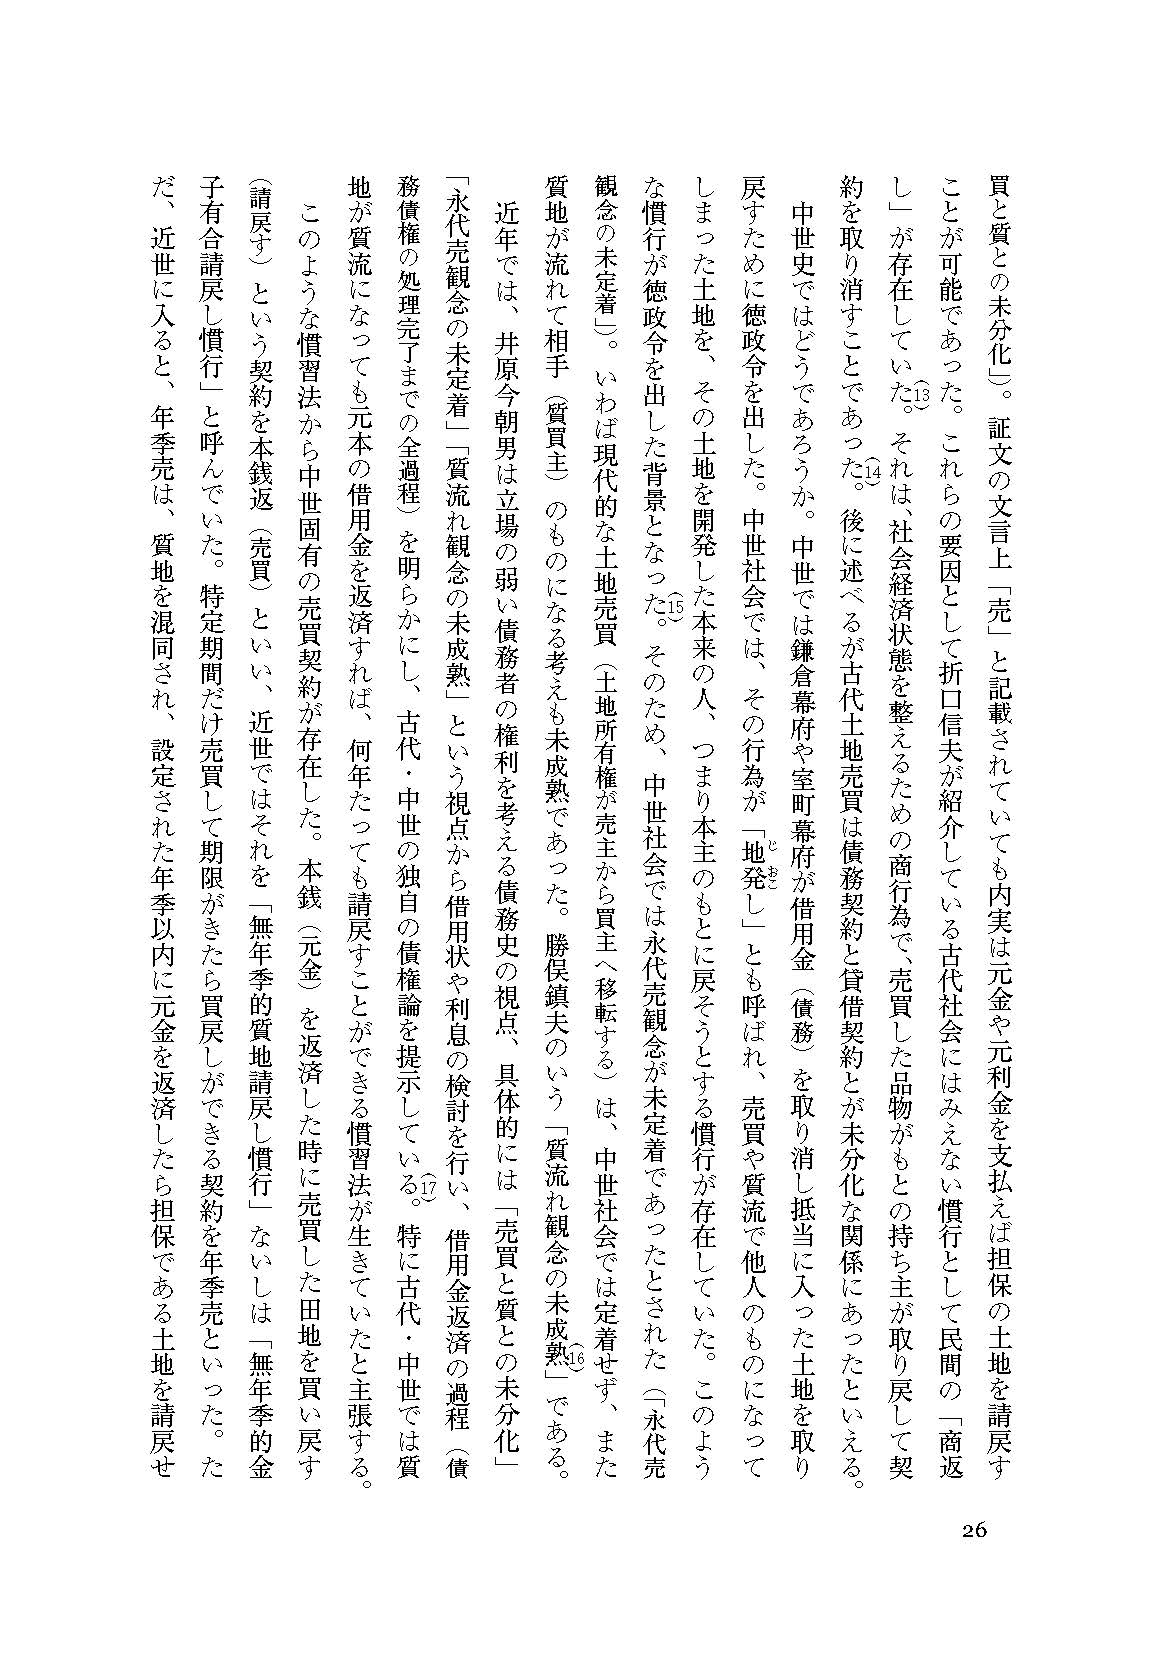 買と質との未分化」）。証文の文言上「売」と記載されていても内実は元金や元利金を支払えば担保の土地を請戻す
ことが可能であった。これらの要因として折口信夫が紹介している古代社会にはみえない慣行として民間の「商返
し」が存在していた(13)。それは、社会経済状態を整えるための商行為で、売買した品物がもとの持ち主が取り戻して契
約を取り消すことであった(14)。後に述べるが古代土地売買は債務契約と貸借契約とが未分化な関係にあったといえる。
　中世史ではどうであろうか。中世では鎌倉幕府や室町幕府が借用金（債務）を取り消し抵当に入った土地を取り
戻すために徳政令を出した。中世社会では、その行為が「地発し」とも呼ばれ、売買や質流で他人のものになって
じおこ
しまった土地を、その土地を開発した本来の人、つまり本主のもとに戻そうとする慣行が存在していた。このよう
な慣行が徳政令を出した背景となった(15)。そのため、中世社会では永代売観念が未定着であったとされた（「永代売
観念の未定着」）。いわば現代的な土地売買（土地所有権が売主から買主へ移転する）は、中世社会では定着せず、また
質地が流れて相手（質買主）のものになる考えも未成熟であった。勝俣鎮夫のいう「質流れ観念の未成熟(16)」である。
　近年では、井原今朝男は立場の弱い債務者の権利を考える債務史の視点、具体的には「売買と質との未分化」
「永代売観念の未定着」「質流れ観念の未成熟」という視点から借用状や利息の検討を行い、借用金返済の過程（債
務債権の処理完了までの全過程）を明らかにし、古代・中世の独自の債権論を提示している(17)。特に古代・中世では質
地が質流になっても元本の借用金を返済すれば、何年たっても請戻すことができる慣習法が生きていたと主張する。
　このような慣習法から中世固有の売買契約が存在した。本銭（元金）を返済した時に売買した田地を買い戻す
（請戻す）という契約を本銭返（売買）といい、近世ではそれを「無年季的質地請戻し慣行」ないしは「無年季的金
子有合請戻し慣行」と呼んでいた。特定期間だけ売買して期限がきたら買戻しができる契約を年季売といった。た
だ、近世に入ると、年季売は、質地を混同され、設定された年季以内に元金を返済したら担保である土地を請戻せ
26